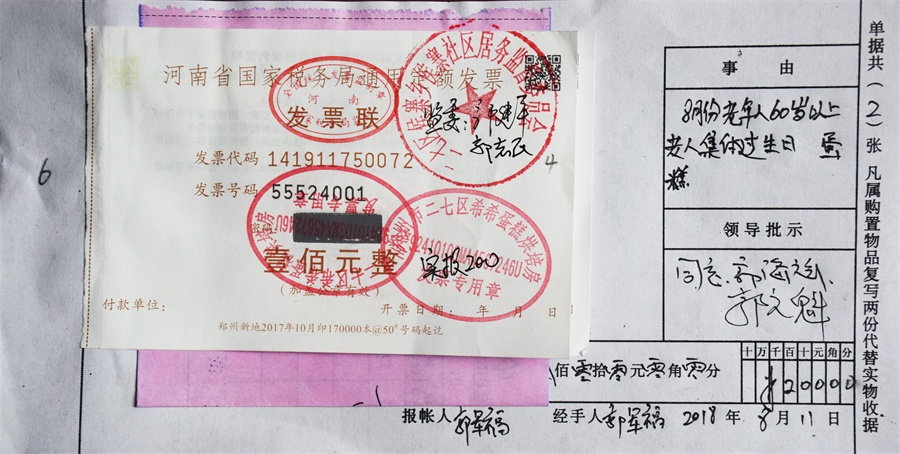 河南省国家税务局通用定额发票
河南
发票联
发票代码 141911750072
发票号码 55524001
密码
壹佰元整
(加盖公章有效)
付款单位：
开票日期： 年 月 日
郑州新地2017年10月印170000本@50#号码起讫
监委：
实报200
二七区希希蛋糕烘焙房
发票专用章
6
4
事由
8月份老年人60岁以上
老人集体过生日 蛋
糕
领导批示
同意
郭文魁
十万千百十元角分
¥20000
佰零拾零元零角零分
报帐人郭军福 经手人郭军福 2018年8月11日
单据共（2）张 凡属购置物品复写两份代替实物收据